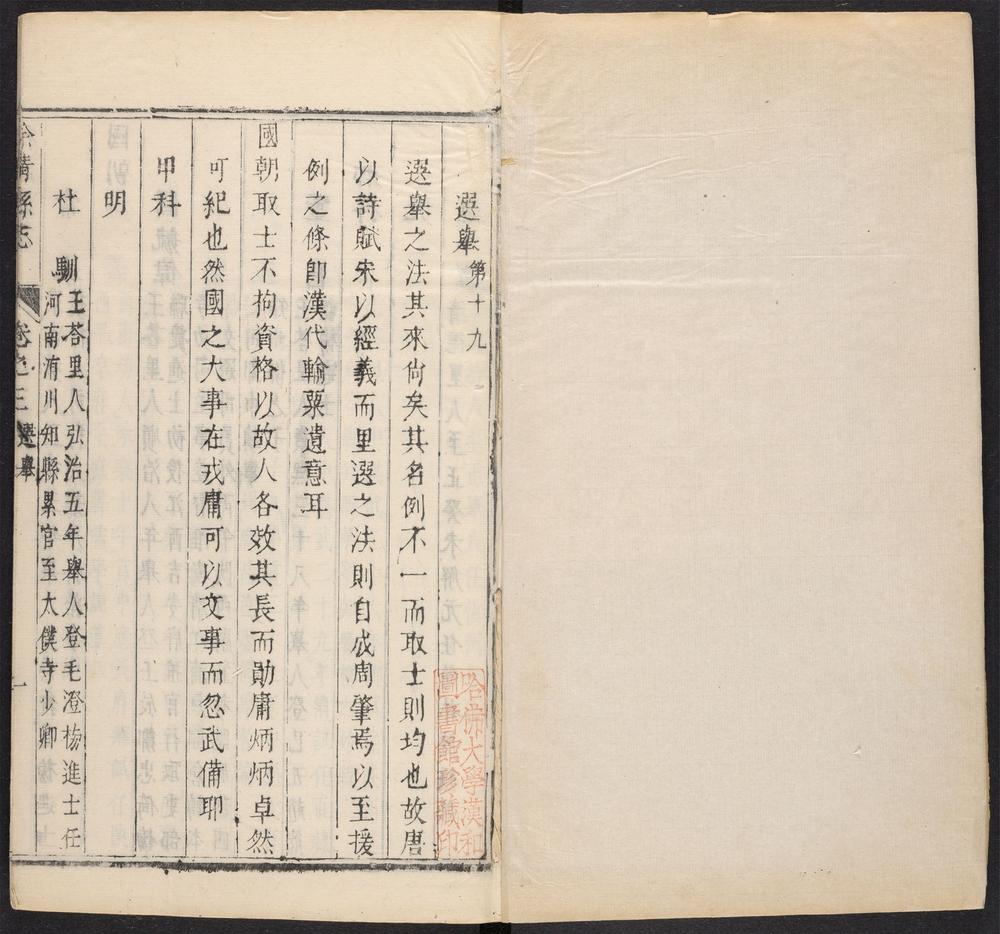 選舉第十九
選舉之法其來尙矣其名例不一而取士則均也故唐
以詩賦宋以經義而里選之法則自成周肇焉以至援
例之條卽漢代輸粟遺意耳
國朝取士不拘資格以故人各效其長而勛庸炳炳卓然
可紀也然國之大事在戎庸可以文事而忽武備耶
甲科
明
杜馴王荅里人弘治五年舉人登毛澄榜進士任
河南洧川知縣累官至太僕寺少卿
清縣志 卷之三 選舉 一
哈佛大學漢和
圖書館珍藏印